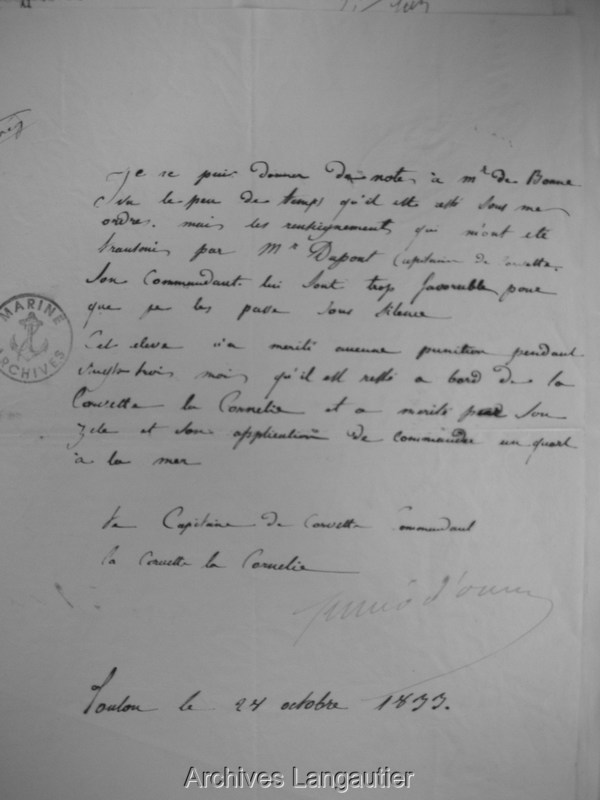 Je ne puis donner de notes à Mr de Bonne
vu le peu de temps qu'il a été sous mes
ordres. mais les renseignements qui m'ont été
transmis par Mr Dupont Capitaine de corvette
son Commandant lui sont trop favorable pour
que je les passe sous silence
Cet eleve n'a merité aucune punition pendant
vingt trois mois qu'il est resté a bord de la
Corvette la Cornelie et a merité par son
zele et son application de commander un quart
à la mer
Le Capitaine de Corvette Commandant
la Corvette la Cornelie
Toulon le 24 octobre 1833.
MARINE
ARCHIVES
Archives Langautier